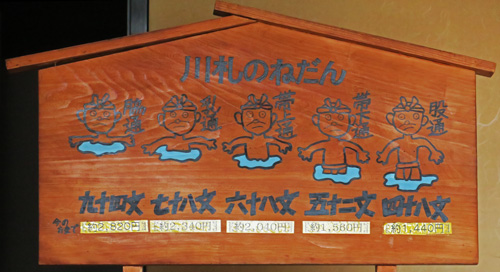 川札のねだん
脇通 乳通 帯上通 帯下通 股通
九十四文 七十八文 六十八文 五十二文 四十八文
今の
お金で 約2,820円 約2,340円 約2,040円 約1,560円 約1,440円